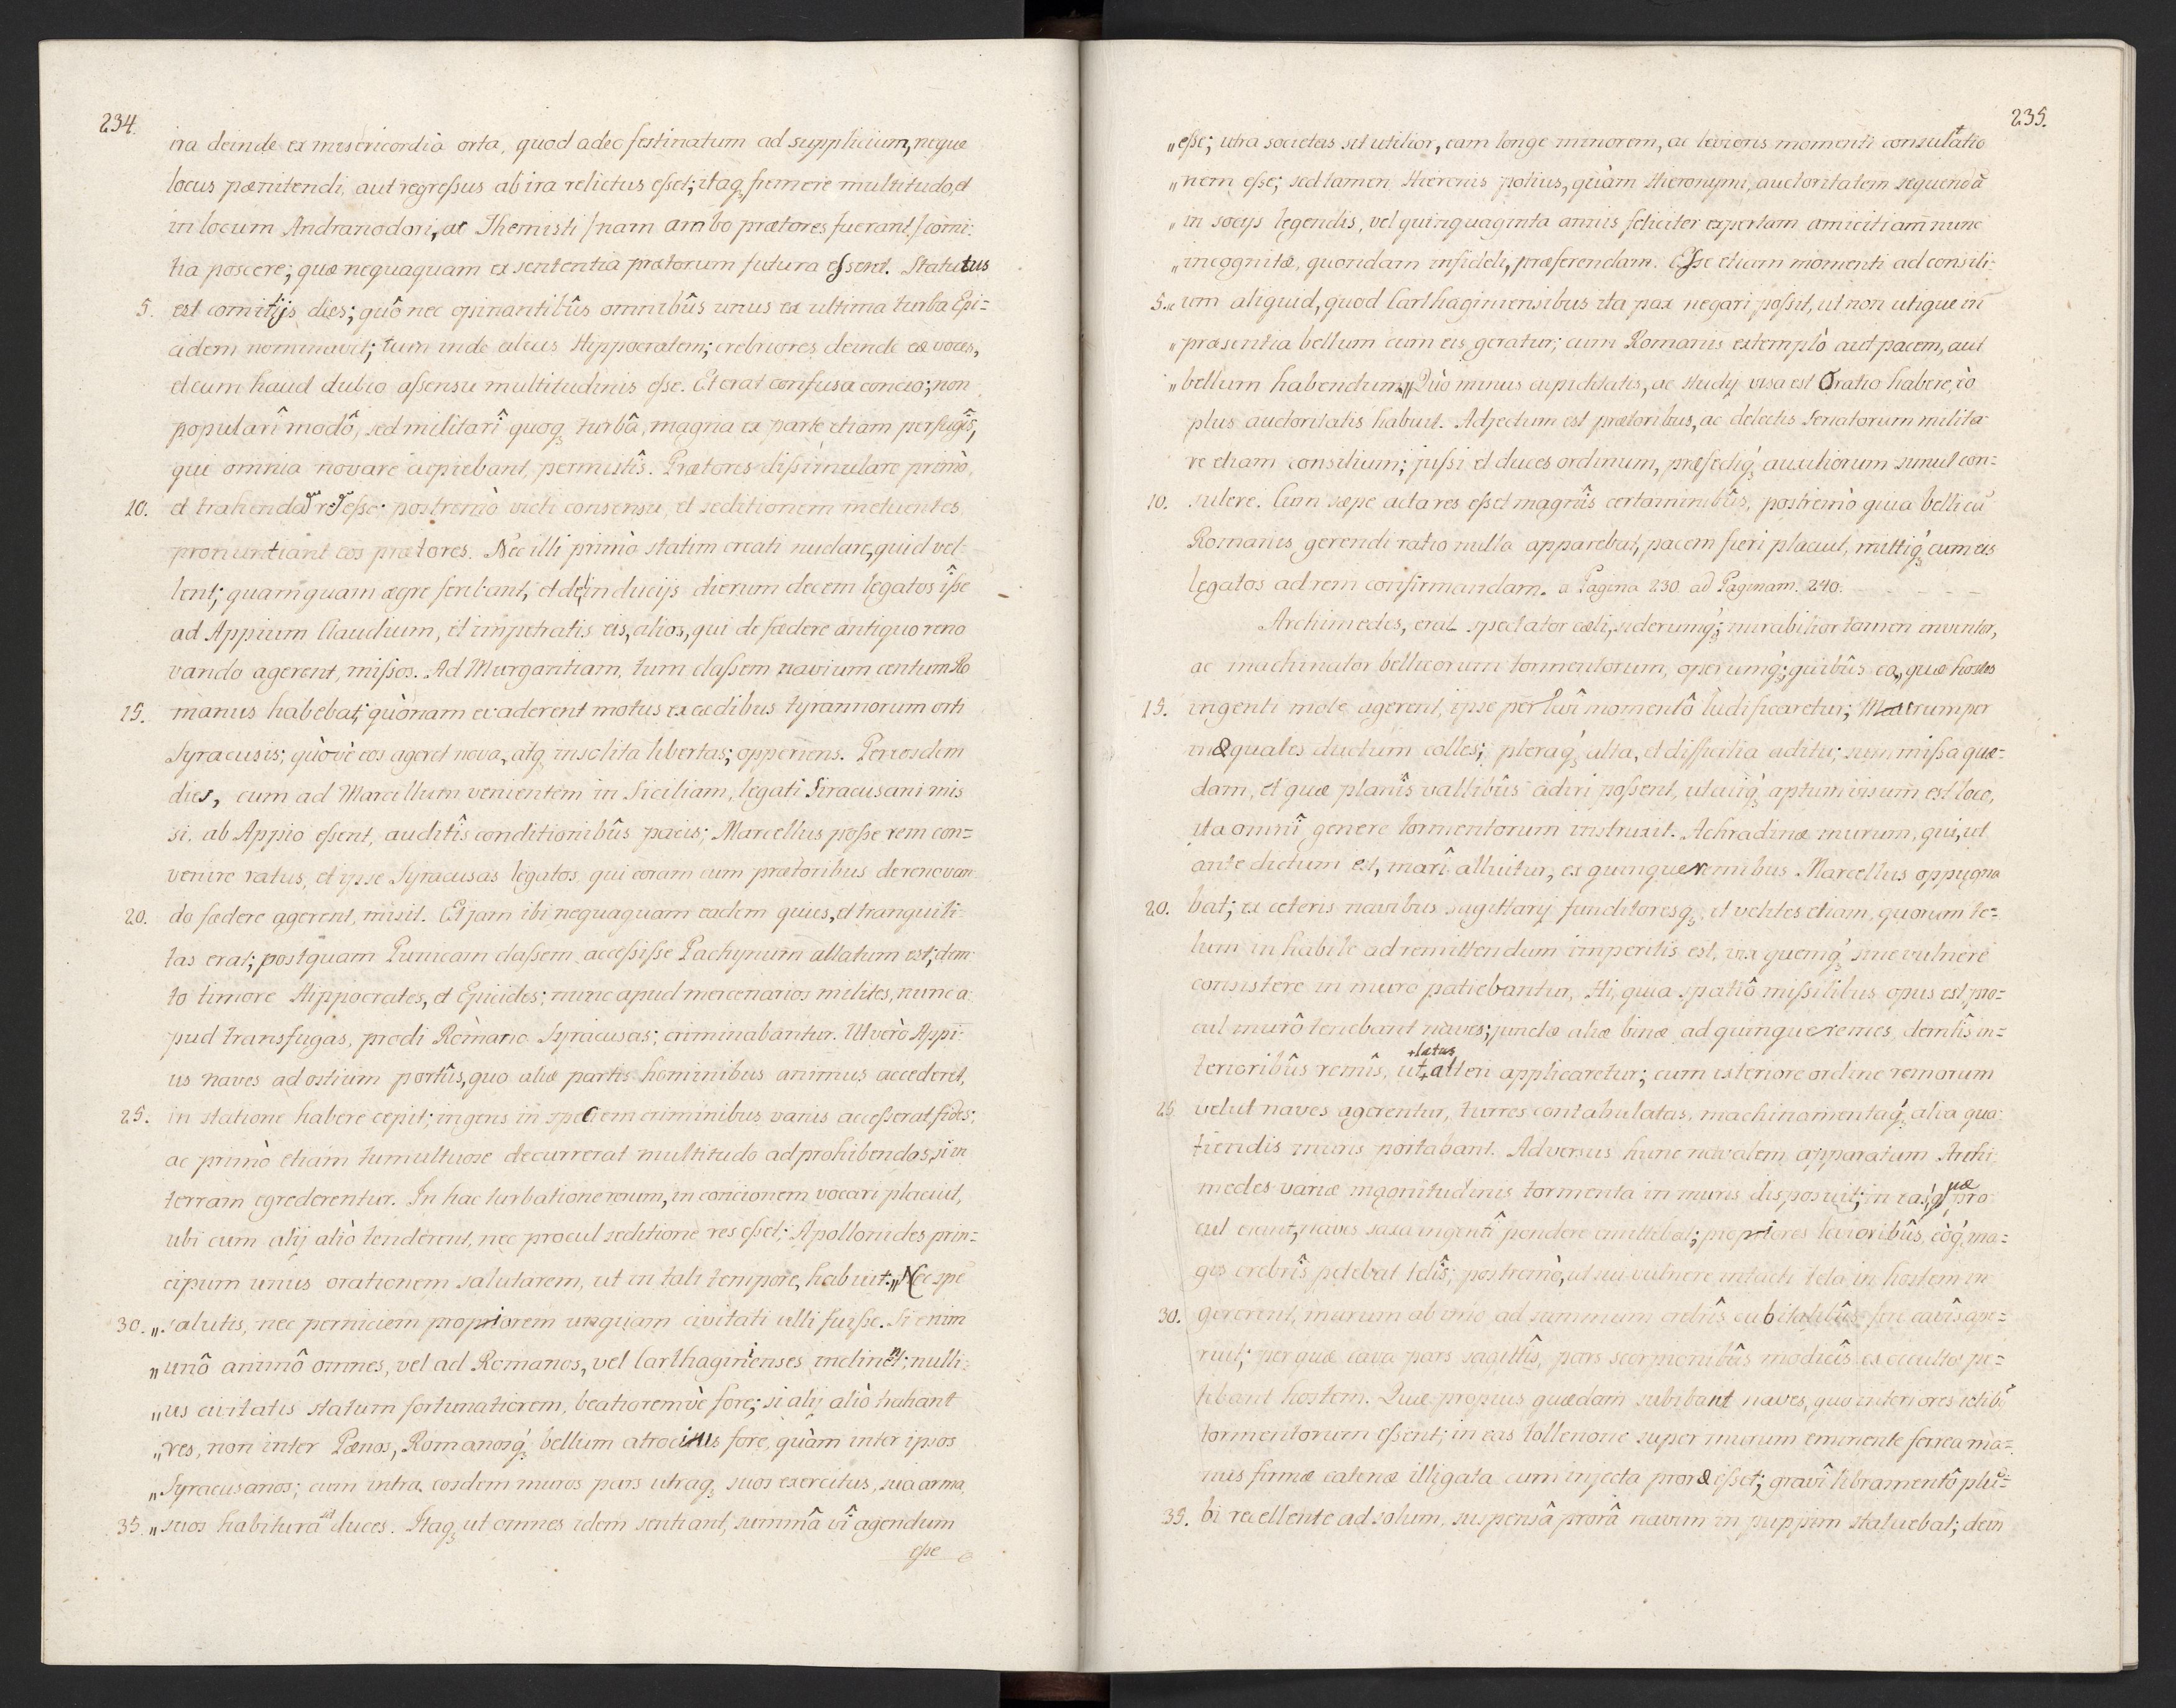 234.
ira deinde ex misericordiâ orta, quod adeo festinatum ad supplicium, neque
locus pænitendi, aut regressus ab ira relictus esset; itaq; fremere multitudo, et
in locum Andranodori, ac Themisti /nam ambo prætores fuerant/ comi:
tia poscere; quæ nequaquam ex sententia prætorum futura essent. Statutus
5. est comitijs dies; quô nec opinantibûs omnibûs unus ex ultima turba Epi=
cidem nominavit; tum inde alius Hippocratem; crebriores deinde eæ voces,
et cum haud dubio assensu multitudinis esse. Et erat confusa concio; non
popularî modô, sed militarî quoq; turbâ, magna ex parte etiam perfugîs,
qui omnia novare cupiebant, permistîs. Prætores dissimulare primò,
10. et trahendam rem esse: postremò victi consensu, et seditionem metuentes
pronuntiant eos prætores. Nec illi primò statim creati nudare, quid vel
lent; quamquam ægre ferebant, et de inducijs dierum decem legatos îsse
ad Appium Claudium, et impetratis eis, alios, qui de fœdere antiquo reno
vando agerent, missos. Ad Murgantiam, tum classem navium centum Ro
15. manus habebat; quònam evaderent motus ex cædibus tyrannorum orti
Syracusis; quòvè eos ageret nova, atq; insolita libertas; opperiens. Per eosdem
dies, cum ad Marcellum venientem in Siciliam, legati Siracusani mis
si, ab Appio essent, auditîs conditionibûs pacis; Marcellus posse rem con=
venire ratus, et ipse Syracusas legatos, qui coram cum prætoribus de renovan
20. do fœdere agerent, misit. Et jam ibi nequaquam eadem quies, et tranquili-
tas erat; postquam Punicam classem accessisse Pachynum allatum est; dem
to timore Hippocrates, et Epicides; nunc apud mercenarios milites, nunc a
pud transfugas, prodi Romano Syracusas; criminabantur. Ut verò Appi
us naves ad ostium portûs, quo aliæ partis hominibus animus accederet,
25. in statione habere cepit; ingens in speciem criminibus vanis accesserat fides;
ac primò etiam tumultuose decurrerat multitudo ad prohibendos, si in
terram egrederentur. In hac turbatione rerum, in concionem vocari placuit,
ubi cum alij aliò tenderent, nec procul seditione res esset; Apollonides prin=
cipum unus orationem salutarem, ut in tali tempore, habuit: „Nec spe
30. „salutis, nec perniciem propriorem unquam civitati ulli fuisse. Si enim
„unô animô omnes, vel ad Romanos, vel Carthaginienses inclinent; nulli:
„us civitatis statum fortunatiorem, beatioremvè fore; si alij aliò trahant
„res, non inter Pœnos, Romanosq́; bellum atrocius fore, quàm inter ipsos
„Syracusanos; cum intra eosdem muros pars utraq; suos exercitus, sua arma,
35. „suos habitura sit duces. Itaq; ut omnes idem sentiant, summâ vî agendum
esse
235.
„esse; utra societas sit utilior, eam longe minorem, ac levioris momenti consultatio
„nem esse; sed tamen Hieronis potius, quàm Hieronymi, auctoritatem sequendā
„in socijs legendis, vel quinquaginta annis feliciter expertam amicitiam nunc
„incognitæ, quondam infideli, præferendam. Esse etiam momenti ad consili-
5. „um aliquid, quod Carthaginiensibus ita pax negari possit, ut non utique in
„præsentia bellum cum eis geratur; cum Romanis extemplò aut pacem, aut
„bellum habendum„ Quò minus cupiditatis, ac studij visa est Oratio habere, eò
plus auctoritatis habuit. Adjectum est prætoribus, ac delectis Senatorum milita
re etiam consilium; jussi et duces ordinum, præfectiq́; auxiliorum simul con=
10. sulere. Cum sæpe acta res esset magnîs certaminibûs, postremò quia belli cū
Romanis gerendi ratio nulla apparebat, pacem fieri placuit, mittiq́; cum eis
legatos ad rem confirmandam. a Pagina 230 ad Paginam. 240.
Archimedes, erat spectator cæli, siderumq́; mirabilior tamen inventor,
ac machinator bellicorum tormentorum, operumq́; quibûs ea, quæ hostes
15. ingenti mole agerent, ipse per levî momentô ludificaretur; Murum per
inæquales ductum colles; pleraq́; alta, et difficilia aditu; summissa quæ=
dam, et quæ planîs vallibûs adiri possent, ut cuiq́; aptum visum est loco,
ita omnî genere tormentorum instruxit. Achradinæ murum, qui, ut
ante dictum est, marî alluitur, ex quinqueremibus Marcellus oppugna
20. bat; ex ceteris navibus sagittarij funditoresq;, et velites etiam, quorum te=
lum inhabile ad remittendum imperitis est, vix quemq́; sine vulnere
consistere in muro patiebantur, Hi, quia spatiô missilibus opus est, pro=
cul murô tenebant naves; junctæ aliæ binæ ad quinqueremes, demtîs in=
terioribûs remîs, ut +latus alteri applicaretur; cum exteriore ordine remorum
25. velut naves agerentur, turres contabulatas, machinamentaq́; alia qua-
tiendis muris portabant. Adversus hunc navalem apparatum Archi
medes variæ magnitudinis tormenta in muris disposuit; in eas, quæ pro
cul erant, naves saxa ingentî pondere emittebat; propriores levioribûs, eòq́; ma=
gis crebrîs petebat telîs; postremò, ut sui vulnere intacti tela in hostem in
30. gererent, murum ab imo ad summum crebrîs cubitalibûs fere cavîs ape=
ruit; per quæ cava pars sagittîs, pars scorpionibûs modicîs ex occulto pe=
tebant hostem. Quæ propius quædam subibant naves, quo interiores ictibꝰ
tormentorum essent; in eas tollenone super murum eminente ferrea ma=
nus firmæ catenæ illigata cum injecta proræ esset; gravî libramentô plu=
35. bi recellente ad solum, suspensâ prorâ navim in puppim statuebat; dein